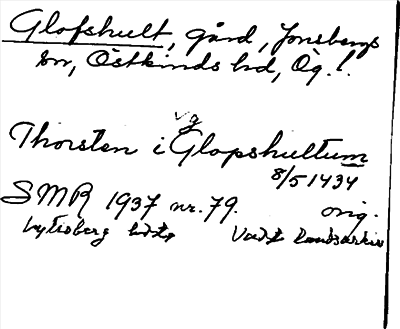 Glofshult, gård, Jonsbergs
sn, Östkinds hd, Ög.!.
vg
Thorsten i Glopshultum
8/5 1434
SMR 1937 nr. 79. orig.
Vadst